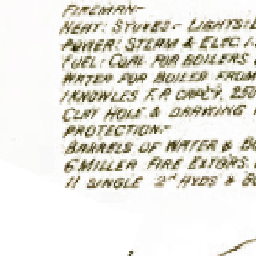 FIREMAN-
HEAT: STOVES- LIGHTS:
POWER: STEAM & ELEC.
FUEL: COAL FOR BOILERS
WATER FOR BOILER FROM
1 KNOWLES F.P. 250
CLAY HOLE & DRAWING
PROTECTION:-
BARRELS OF WATER & B
6 MILLER FIRE EXTGRS.
11 SINGLE 2" HYDS &